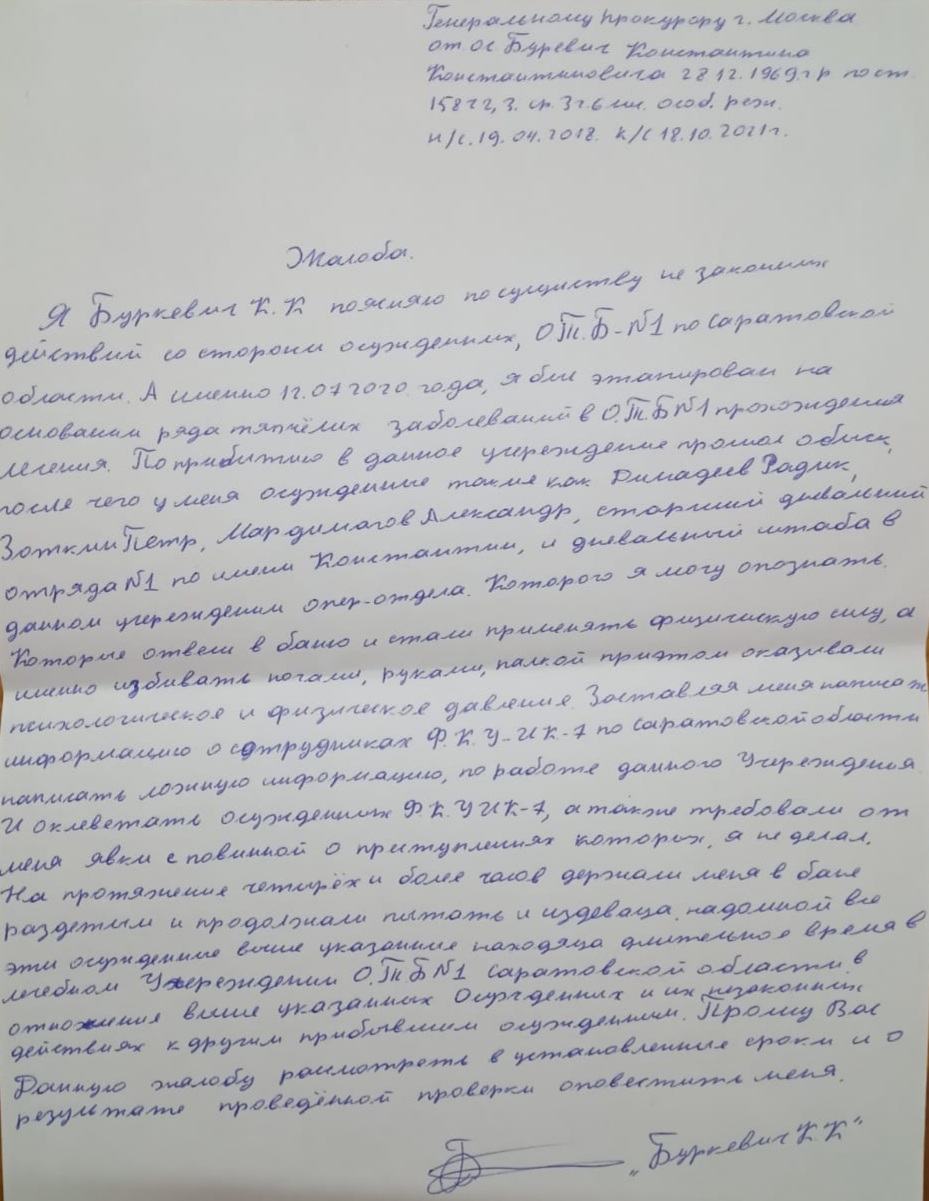 Генеральному прокурору г. Москва
от ос Буревич Константина
Константиновича 28.12.1969 г р по ст.
158 ч 2, 3. ср. 3 г. 6 м. особ. реж.
н/с. 19. 04. 2018. к/с 18.10. 2021 г.
Жалоба.
Я Буркевич К. К поясняю по существу не законних
действий со стороны осужденных, О.Т.Б-№1 по Саратовской
области. А именно 12.07 2020 года, я был этапирован на
основании ряда тяпчёлих заболеваний в О.Т.Б №1 прохождения
лечения. По прибытию в данное учереждение прошол обыск,
после чего у меня осужденние такие как Радик,
Зоткин Петр, Александр, старший дневальный
отряда №1 по имени Константин, и дневальный штаба в
данном учереждении опер-отдела. Которого я могу опознать.
Которые отвели в баню и стали применять физическую силу, а
именно избивать ногами, руками, палкой приэтом оказивали
психологическое и физическое давление. Заставляя меня написать
информацию о сотрудниках Ф.К.У-ИК-7 по Саратовской области
написать ложную информацию, по работе данного Учереждения.
И оклеветать осужденних Ф.К.У ИК-7, а также требовали от
меня явки с повинной о приступлениях которых, я не делал.
На протяжение четирёх и более часов держали меня в бане
раздетым и продолжали пытать и издеваца. надомной все
эти осужденние више указанние находяца длительное время в
лечебном Учереждении О.Т.Б №1 Саратовской области. в
отношения више указанных Осужденних и их незаконних
действиях к другим прибывшим осужденним. Прошу Вас
Данную жалобу расмотреть в установленние сроки и о
результате проведённой проверки оповестить меня.
„Буркевич К. К"